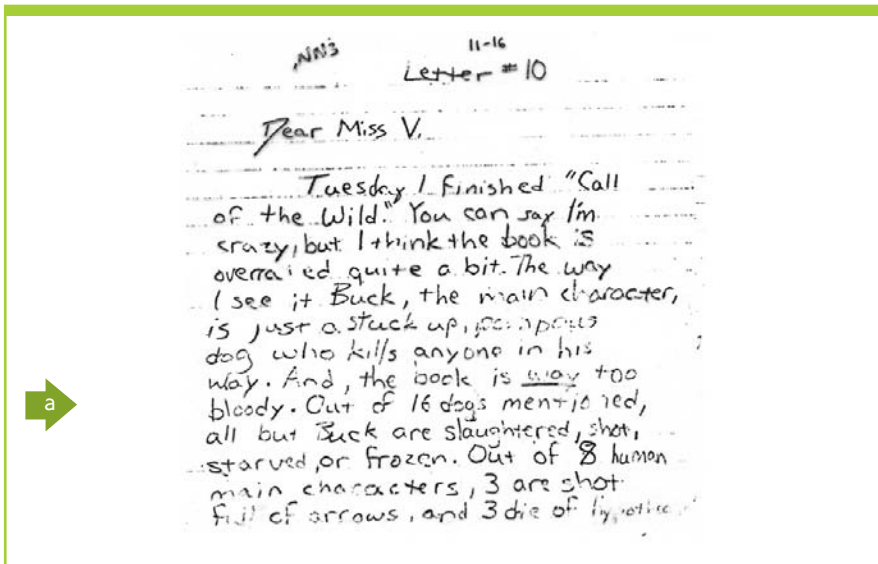 11-16
Letter #10
Dear Miss V.
Tuesday I finished "Call
of the Wild." You can say I'm
crazy, but I think the book is
overrated quite a bit. The way
I see it Buck, the main character,
is just a stuck up, pompous
dog who kills anyone in his
way. And, the book is way too
bloody. Out of 16 dogs mentioned,
all but Buck are slaughtered, shot,
starved, or frozen. Out of 8 human
main characters, 3 are shot
full of arrows, and 3 die of
a